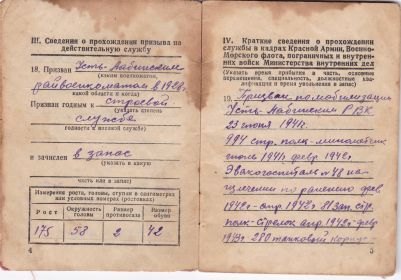 III. Сведения о прохождении призыва на
действительную службу
18. Призван Усть-Лабинским
(каким военкоматом,
райвоенкоматом в 1926г.
какой области и когда)
Признан годным к строевой
(указать степень
службе
годности к военной службе)
и зачислен в запас
(указать в какую
часть или в запас)
Измерения роста, головы, ступни в сантиметрах
или условных номерах (ростовках)
Рост Окружность головы Размер противогаза Размер обуви
175 58 2 42
4
IV. Краткие сведения о прохождении
службы в кадрах Красной Армии, Военно-
Морского флота, пограничных и внутрен-
них войск Министерства внутренних дел
(Указать время прибытия в часть, основные
перемещения, специальность, должностные
и время увольнения в запас)
19. Призван по мобилизации
Усть-Лабинским РВК
23 июня 1941г.
994 стр. полк - минометчик
июль 1941г февр 1942г.
Эвакогоспиталь 48 на
лечении по ранению фев.
1942г - апр. 1942г. 81 зап. стр.
полк - стрелок апр. 1942г февр
1943г. 280 танковый корпус -
5